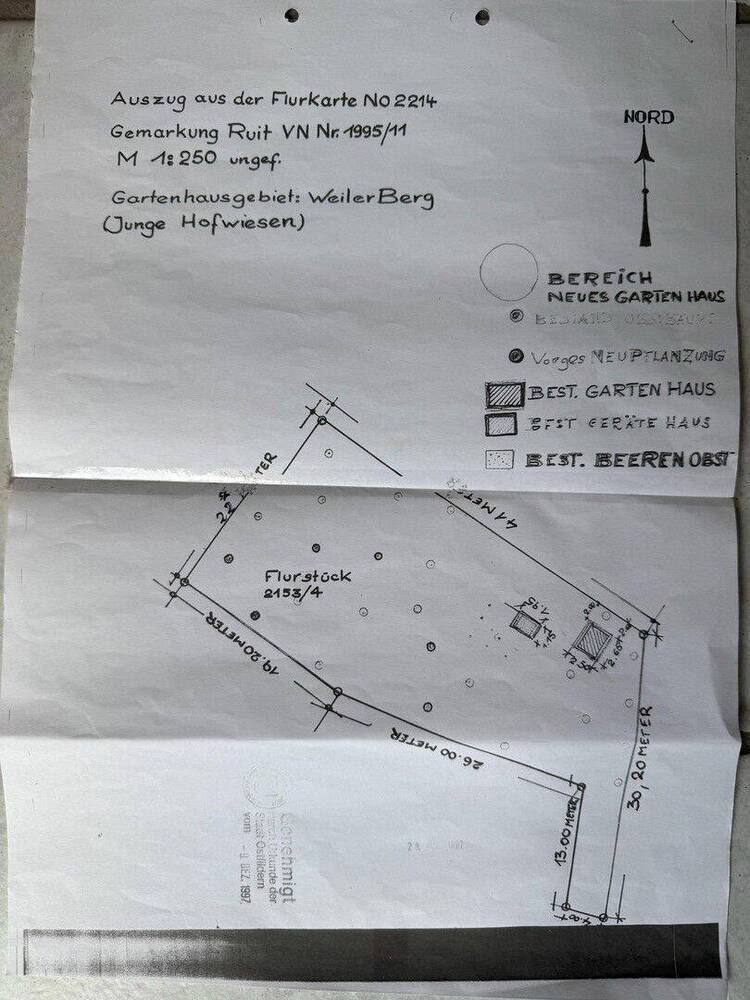 Auszug aus der Flurkarte NO 2214
Gemarkung Ruit VN Nr. 1995/11
M 1:250 ungef.
Gartenhausgebiet: Weiler Berg
(Junge Hofwiesen)
NORD
BEREICH
NEUES GARTEN HAUS
BESTAND OBSTBAUM
Vorges NEUPFLANZUNG
BEST. GARTEN HAUS
BEST GERÄTE HAUS
BEST. BEEREN OBST
METER
41 METER
Flurstück
2153/4
1.95
1.75
2.50
2.60
19.20 METER
26.00 METER
30,20 METER
13.00 METER
4.00
Genehmigt
durch Urkunde der
Stadt Ostfildern
vom - 9. DEZ. 1997